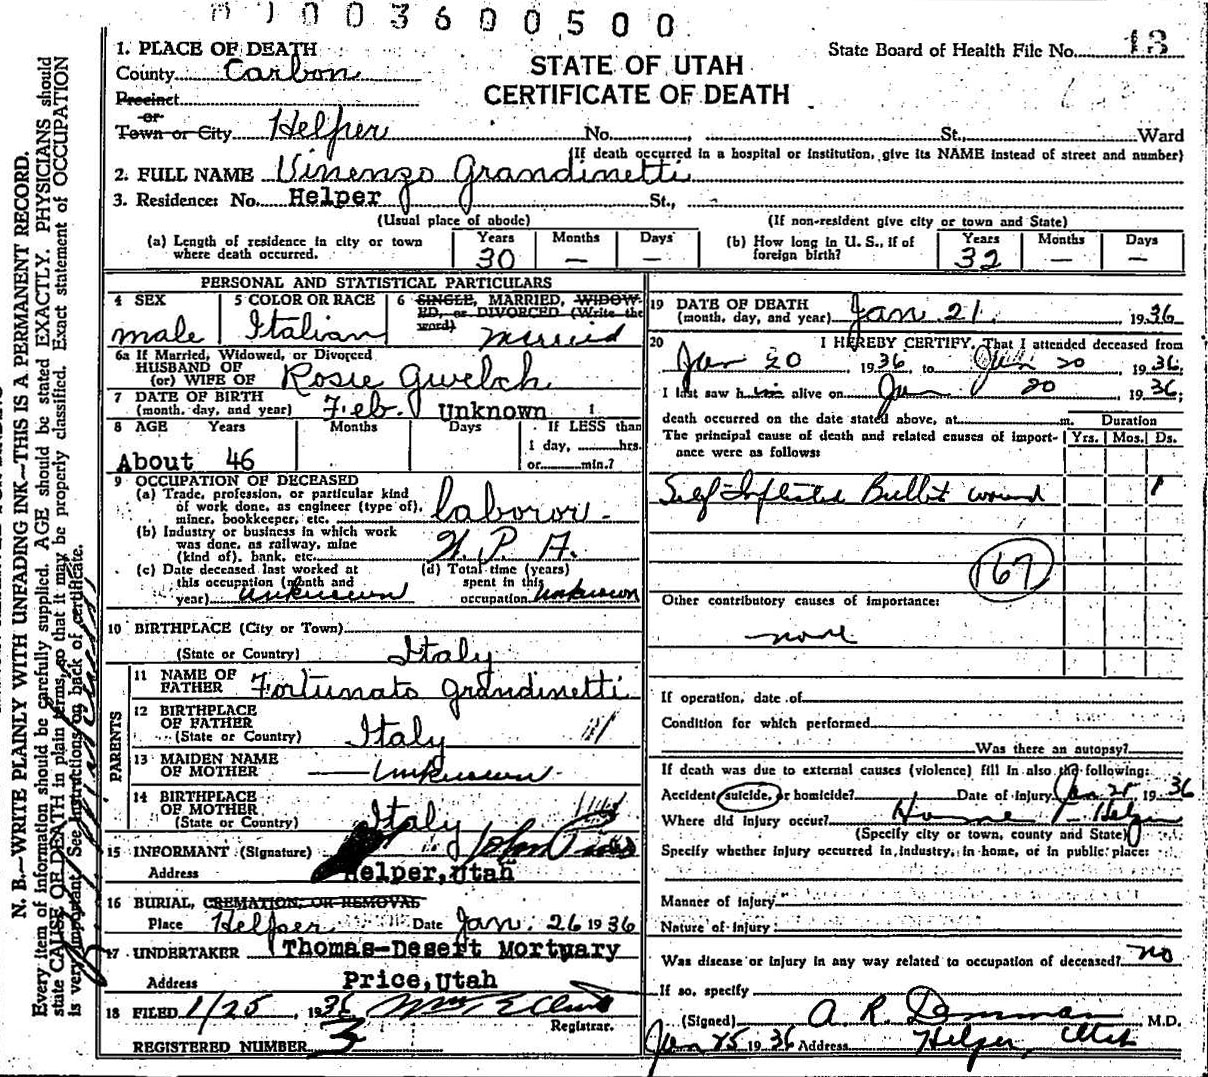 003600500
1. PLACE OF DEATH
County Carbon
Precinct
or
Town or City Helper No. , St., Ward
STATE OF UTAH
CERTIFICATE OF DEATH
State Board of Health File No. 13
(If death occurred in a hospital or institution, give its NAME instead of street and number)
2. FULL NAME Vinenzo Grandinetti
3. Residence: No. Helper St.,
(Usual place of abode) (If non-resident give city or town and State)
(a) Length of residence in city or town where death occurred. Years 30 Months — Days —
(b) How long in U. S., if of foreign birth? Years 32 Months — Days —
PERSONAL AND STATISTICAL PARTICULARS
4 SEX male
5 COLOR OR RACE Italian
6 SINGLE, MARRIED, WIDOWED, or DIVORCED (Write the word) Married
6a If Married, Widowed, or Divorced
HUSBAND OF
(or) WIFE OF Rosie Gwelch
7 DATE OF BIRTH
(month, day, and year) Feb. Unknown 1
8 AGE Years Months Days If LESS than
1 day, hrs.
About 46 or min.?
9 OCCUPATION OF DECEASED
(a) Trade, profession, or particular kind
of work done, as engineer (type of),
miner, bookkeeper, etc. laboror
(b) Industry or business in which work
was done, as railway, mine
(kind of), bank, etc. W. P. A.
(c) Date deceased last worked at
this occupation (month and
year) unknown
(d) Total time (years)
spent in this
occupation unknown
10 BIRTHPLACE (City or Town)
(State or Country) Italy
PARENTS
11 NAME OF
FATHER Fortunato Grandinetti
12 BIRTHPLACE
OF FATHER
(State or Country) Italy
13 MAIDEN NAME
OF MOTHER unknown
14 BIRTHPLACE
OF MOTHER
(State or Country) Italy
15 INFORMANT (Signature) John
Address Helper, Utah
16 BURIAL, CREMATION, OR REMOVAL
Place Helper Date Jan. 26 1936
17 UNDERTAKER Thomas-Desert Mortuary
Address Price, Utah
18 FILED 1/25, 1936
Registrar.
REGISTERED NUMBER 3
19 DATE OF DEATH
(month, day, and year) Jan 21. 1936
20 I HEREBY CERTIFY, That I attended deceased from
Jan 20, 1936, to Jan 20 1936;
I last saw him alive on Jan 20 1936;
death occurred on the date stated above, at m. Duration
The principal cause of death and related causes of importance were as follows: Yrs. Mos. Ds.
Self Inflicted Bullet wound 1
167
Other contributory causes of importance:
none
If operation, date of
Condition for which performed
Was there an autopsy?
If death was due to external causes (violence) fill in also the following:
Accident, suicide, or homicide? Date of injury Jan 1936
Where did injury occur? Home - Helper
(Specify city or town, county and State)
Specify whether injury occurred in industry, in home, or in public place:
Manner of injury
Nature of injury
Was disease or injury in any way related to occupation of deceased? no
If so, specify
(Signed) A. R. Demman M.D.
Jan 25 1936 Address Helper, Utah
N. B.—WRITE PLAINLY WITH UNFADING INK—THIS IS A PERMANENT RECORD.
Every item of information should be carefully supplied. AGE should be stated EXACTLY. PHYSICIANS should
state CAUSE OF DEATH in plain terms, so that it may be properly classified. Exact statement of OCCUPATION
is very important. See instructions on back of certificate.